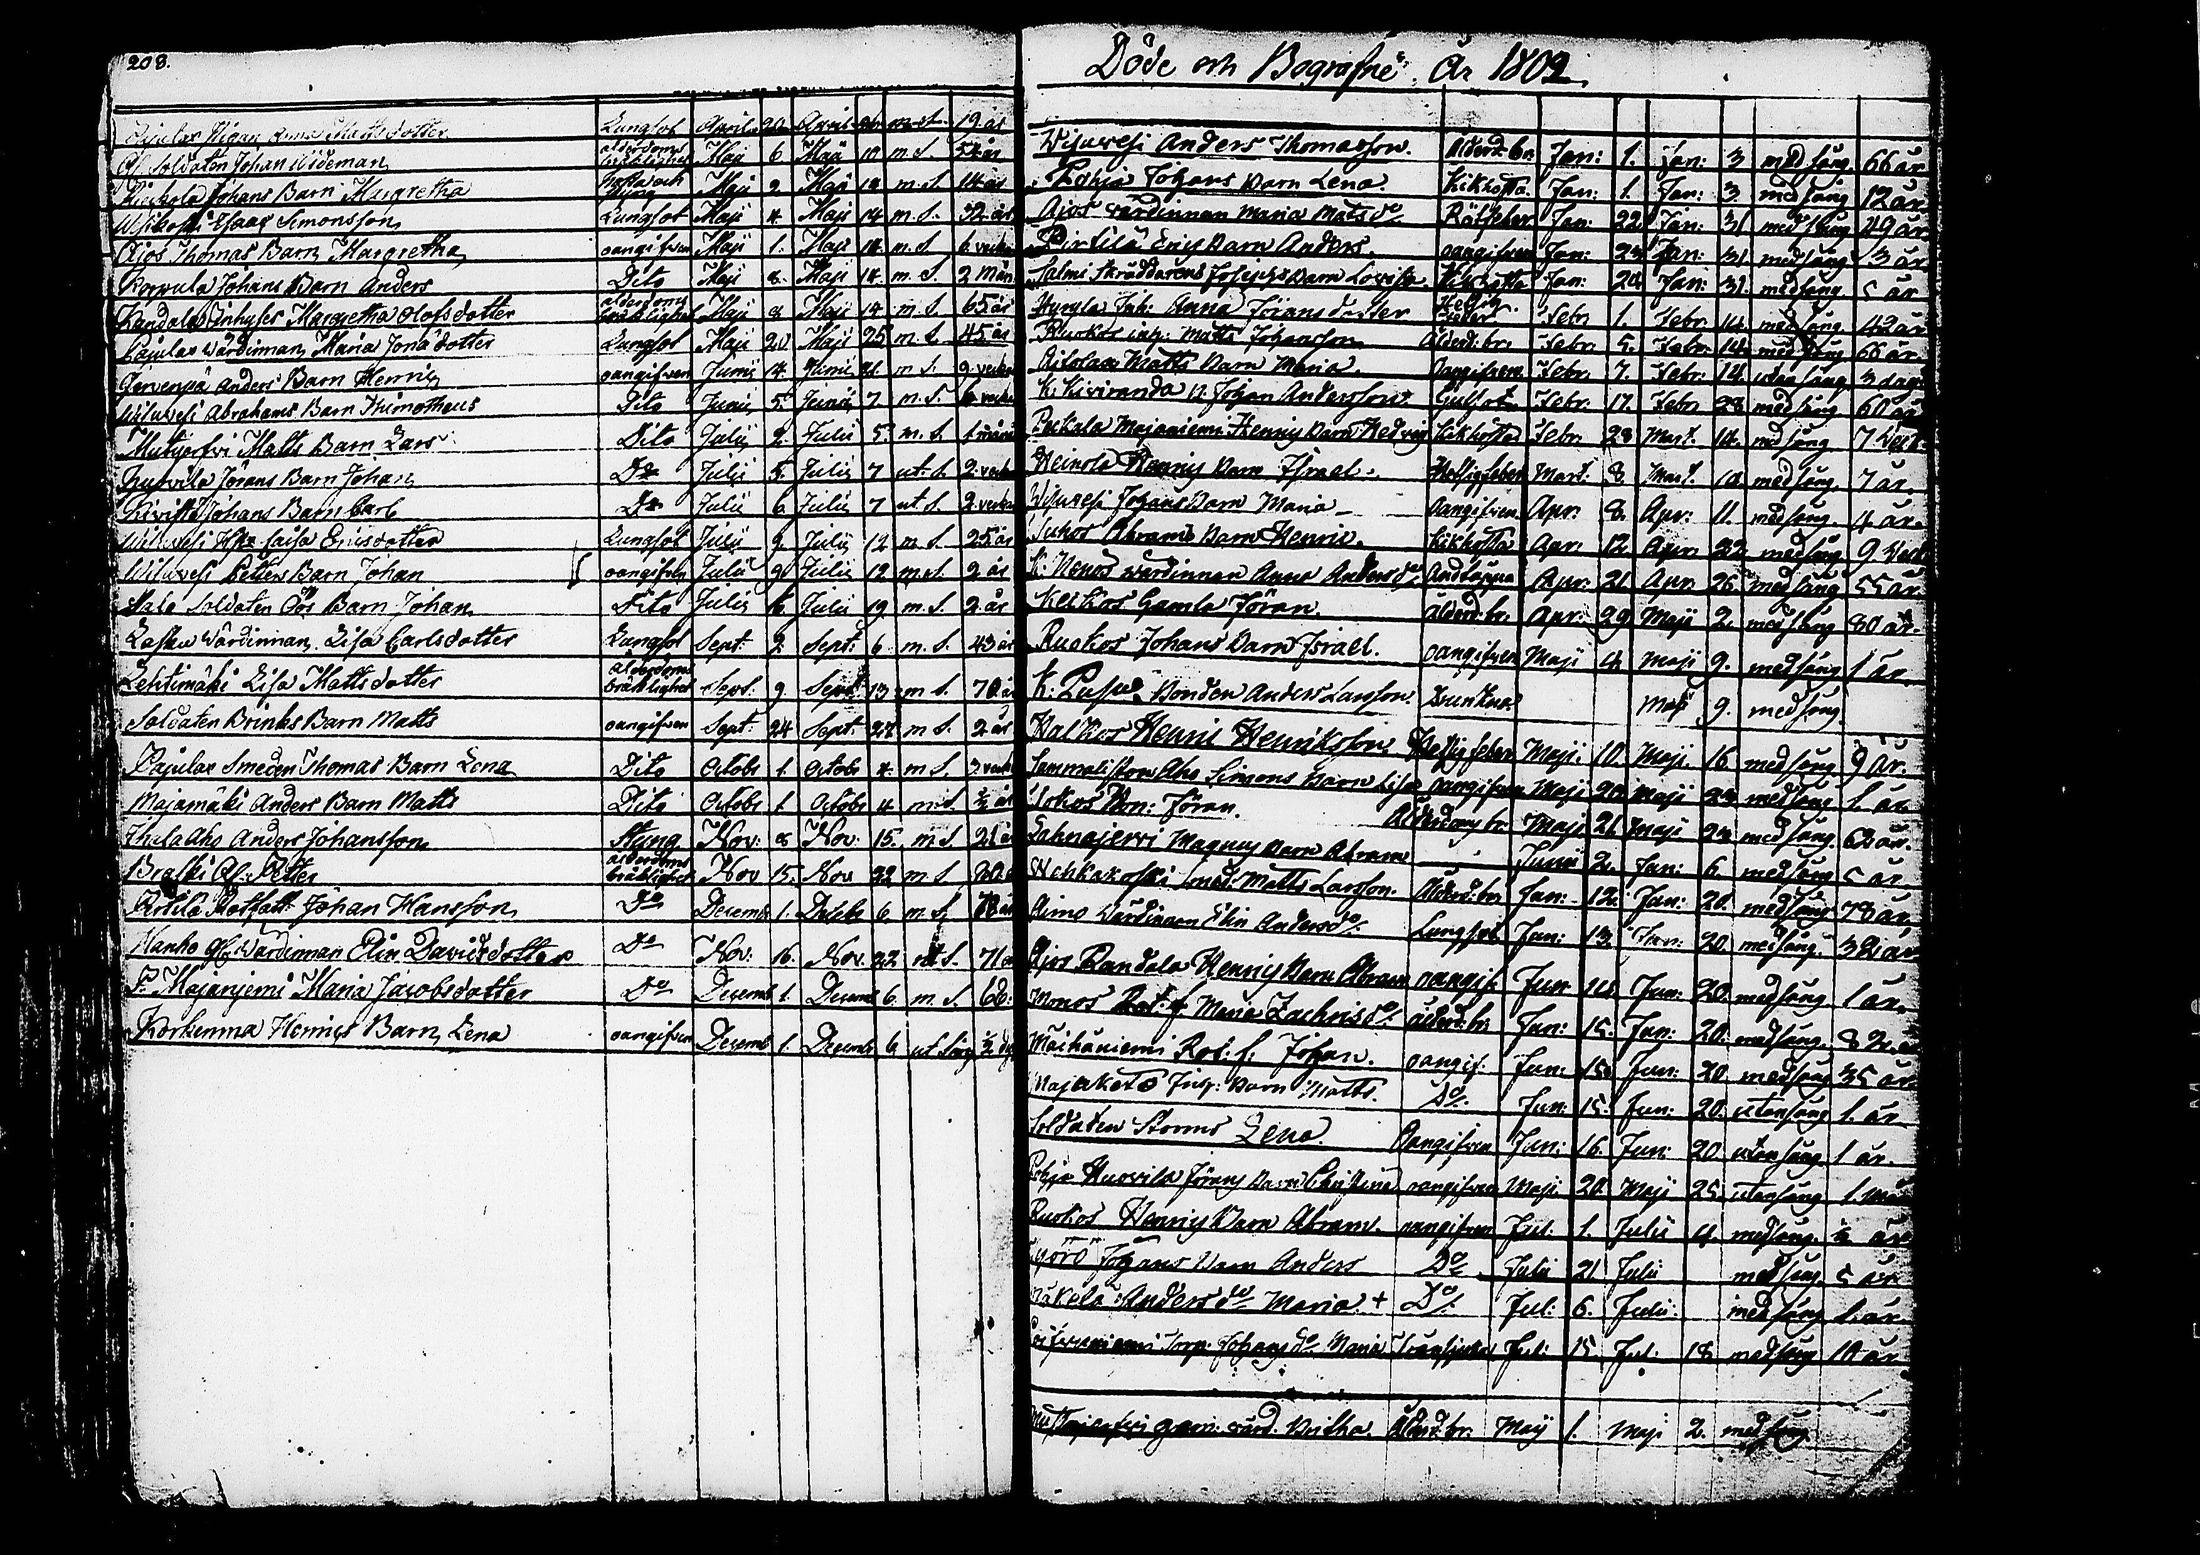 208.
Pajulax Pigan Anna Matts dotter Lungsot April 20 April 26 m. S. 19 år
Gl. Soldaten Johan Wideman alderdoms bräklighet Maji 6. Maji 10 m. S. 52 år
Johans Barn Margretha hosta och Maji 9. Maji 10 m. S. 14 år
Isaac Simonsson Lungsot Maji 4. Maji 14 m. S. 32 år
Ajos Thomas Barn Margretha oangifven Maji 1. Maji 14. m. S. 6 veckor
Korvula Johans Barn Anders Dito Maji 8. Maji 14 m. S. 2 Mån
Kandolas Inhyses Margretha Olofsdotter alderdoms bräklighet Maji 8 Maji 14 m. S. 65 år
Pajulax Wärdinnan Maria Jona dotter Lungsot Maji 20 Maji 25 m. S. 45 år
Jervenpä Anders Barn Henric oangifven Junii 14. Junii 21. m. S. 9 veckor
Wiluvesi Abrahams Barn Thimotheus Dito Junii 5. Junii 7 m. S. 6 veckor
Mutujerfvi Matts Barn Lars Dito Julii 2. Julii 5 m. S. 1 månad
Huovila Jörans Barn Johan Do Julii 5. Julii 7 ut. S. 2 veckor
Kivistö Johans Barn Carl Do Julii 6 Julii 7 ut S. 2 veckor
Wiluvesi Caisa Ericsdotter Lungsot Julii 9. Julii 12 m. S. 25 år
Wiluvesi Petters Barn Johan oangifven Julii 9. Julii 12 m. S. 2 år
Sale Soldaten Öös Barn Johan Dito Julii 16 Julii 19 m. S. 2 år
Laspu Wärdinnan Lisa Carlsdotter Lungsot Sept: 2. Sept: 6. m. S. 43 år
Lehtimäki Lisa Mattsdotter alderdoms bräklighet Sept. 9. Sept. 13 m S. 70 år
Soldaten Brinks Barn Matts oangifven Sept: 24 Sept: 27 m S. 2 år
Pajulax Smeden Thomas Barn Lena Dito Octobr 1. Octobr 4. m S. 3 veckor
Majamäki Anders Barn Matts Dito Octobr 1. Octobr 4 m. S. ½ år
Anders Johansson Stÿng Nov: 8 Nov: 15. m S. 21
Petter alderdoms bräklighet Nov 15. Nov 22 m S. 80
Pirtilä Rotfatt: Johan Hansson Do Decemb 1. Decebr 6. m. S. 78 år
Hanho Gl. Wärdinnan Elin Davidsdotter Do Nov: 16. Nov. 22 m S. 71
P. Majanjemi Maria Jacobsdotter Do Decemb 1. Decemb 6. m. S. 62.
Korkeema Henrics Barn Lena oangifven Decemb 1. Decemb 6 ut Sång ½ dyg
Döde och Begrafne År 1802.
Wiluvesi Anders Thomasson. Ålderd. br. Jan: 1. Jan: 3 med sång. 66 år
Pohja Johans Barn Lena. Kikhosta. Jan: 1. Jan: 3. med sång 12 år
Ajos wärdinnan Maria Mats do Rötfeber Jan: 22. Jan: 31 med sång 49 år.
Pirtilä Erics Barn Anders. oangifven Jan: 23. Jan: 31. med sång 3 år.
Salmi Skräddarens Josephs Barn Lovisa Kikhosta Jan: 24 Jan: 31. med sång. 5 år
Inh: Anna Jörans dotter Hetsig feber Febr. 1. Febr. 14. med sång. 42 år
Ruokos inh: Matts Johansson Ålderd: br. Febr: 5. Febr: 14. med sång 66 år.
Matts Barn Maria. oangifven Febr. 7. Febr: 14. utan sång 3 dag:
K. Kiviranda N. Johan Andersson Gulsot Febr: 17. Febr 28 med sång 60 år
Perkala Majaniemi Henrics Barn Hedvig Kikhosta Febr. 28 Mart. 14. med sång 7 Veck.
Heinola Henrics Barn Israel. Hetsig feber Mart. 8. Mart. 14. med sång. 7 år
Wiluvesi Johans Barn Maria oangifven Apr: 8. Apr: 11. med sång. 4 år.
Juhos Abrams Barn Henric. Kikhosta Apr: 12. Apr: 22 med sång 9 Veck
K. Nenos wärdinnan Anna Anders do Andtäppa Apr: 21. Apr. 26. med sång 55 år.
Keikos Gamla Jöran. Ålderd: br. Apr: 29. Maji 2. med sång 80 år.
Ruokos Johans Barn Israel. oangifven Maji 4. Maji 9. med sång 1 år
K. Puspe Bonden Anders Larsson. Drunknat Maji 9. med sång.
Halkos Henric Henriksson Hetsig feber Maji. 10. Maji. 16. med sång. 9 år.
Sammaliston Aho Simons Barn Lisa oangifven Maji 20. Maji 23 med sång 1 år
Jokos Bon: Jöran. Ålderdoms br. Maji. 21. Maji 23. med sång. 62 år.
Lahnajervi Magnus Barn Abram Junii 2. Jun: 6. med sång 5 år
Wehkakoski smed: Matts Larsson. Ålderd: br. Jun: 12. Jun: 20. med sång 78 år,
Aimo Wärdinnan Elin Anders do. Lungsot Jun: 13. Jun: 20. med sång. 32 år
Ajos Randala Henrics Barn Abram oangif: Jun: 14. Jun: 20. med sång 1 år.
Monos Rot: f. Maria Zachris do. ålderd: br. Jun: 15. Jun: 20. med sång. 82. år
Maihäniemi Rot: f. Johan. oangif: Jun: 15. Jun: 20. med sång 35 år.
Majaketo Jusp: Barn Matts. Do. Jun: 15. Jun: 20. utan sång 1. år
Soldaten Storms Lena. oangifven Jun: 16. Jun: 20 utan sång 1 år.
Pohja Huovila Jörans Barn Christina oangifven Maji. 20. Maji 25. utan sång 1. mån
Ruokos Henrics Barn Abram. oangifven Jul: 1. Julii 4. med sång. ½ år
Johans Barn Anders Do Julii 21 Julii med sång 5 år
Mäkelä Anders do Maria. + Do. Jul: 6. Julii. med sång 1. år.
Torp: Johans do Maria Jul: 15. Jul: 18. med sång 10 år.
gam: värd. Britha. Ålderd: br. Maij 1. Maji 2. med sång.